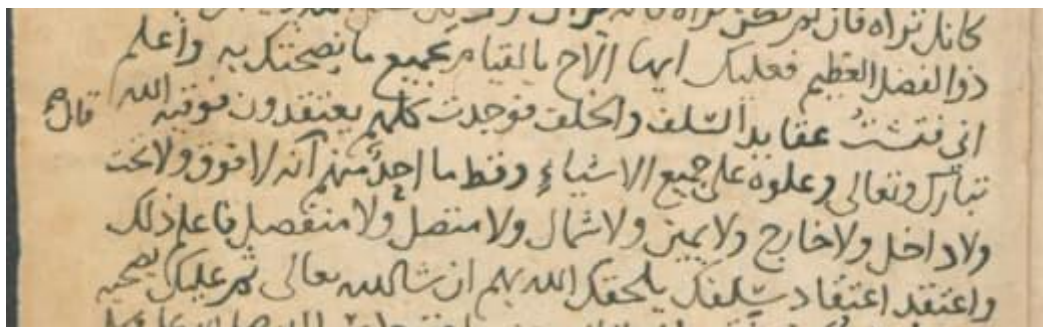 كانك تراه فان لم تكن تراه فانه يراك
ذو الفضل العظيم فعليك ايها الاخ بالقيام بجميع ما نصحتك به واعلم
اني فتشت عقايد السلف والخلف فوجدت كلهم يعتقدون فوقيه الله
تبارك وتعالى وعلوه على جميع الاشياء وقط ما احد منهم انه لا فوق ولا تحت
قال
ولا داخل ولا خارج ولا يمين ولا شمال ولا متصل ولا منفصل فاعلم ذلك
واعتقد اعتقاد سلفك يلحقك الله بهم ان شا الله تعالى ثم عليك بصحبه